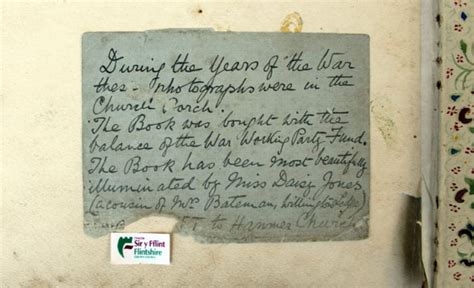 During the Years of the War
thes- Photographs were in the
Church Porch.
The Book was bought with the
balance of the War Working Party Fund.
The Book has been most beautifully
illuminated by Miss Daisy Jones
(a cousin of Mrs Bateman,
to Hanmer Church
Sir y Fflint
Flintshire